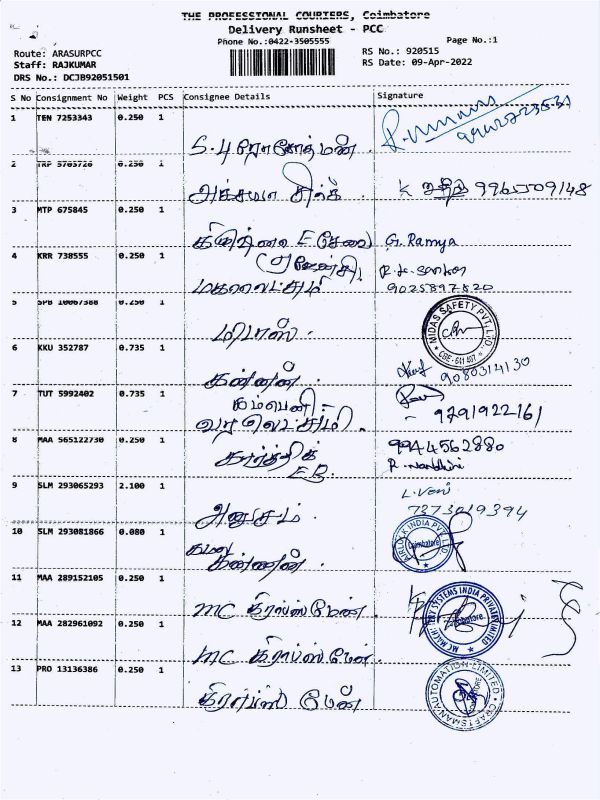 THE PROFESSIONAL COURIERS, Coimbatore
Delivery Runsheet - PCC
Phone No.:0422-3505555
Page No.:1
Route: ARASURPCC
Staff: RAJKUMAR
DRS No.: DCJB92051501
RS No.: 920515
RS Date: 09-Apr-2022
S No Consignment No Weight PCS Consignee Details Signature
1 TEN 7253343 0.250 1
2 TRP 5765726 0.250 1
அக்சயா
3 MTP 675845 0.250 1
G. Ramya
4 KRR 738555 0.250 1
மகாலட்சுமி
9025897820
5 SPB 10067388 0.250 1
மிடாஸ்.
MIDAS SAFETY PVT LTD
CBE - 641 407
6 KKU 352787 0.735 1
கண்ணன்
9080314130
7 TUT 5992402 0.735 1
கம்பெனி
வரலெட்சுமி.
9791922161
8 MAA 565122730 0.250 1
கார்த்திக்
EB
9944562880
R. Nandhini
9 SLM 293065293 2.100 1
அனுசம்.
7373019394
10 SLM 293081866 0.080 1
கண்ணன்.
AIRLOCK INDIA PVT LTD
Coimbatore
11 MAA 289152105 0.250 1
MC கிராப்ஸ்மேன்.
12 MAA 282961092 0.250 1
MC கிராப்ஸ்மேன்.
SYSTEMS INDIA PRIVATE LIMITED
Coimbatore
13 PRO 13136386 0.250 1
கிராப்ஸ் மேன்
CRAFTSMAN AUTOMATION LIMITED
COIMBATORE